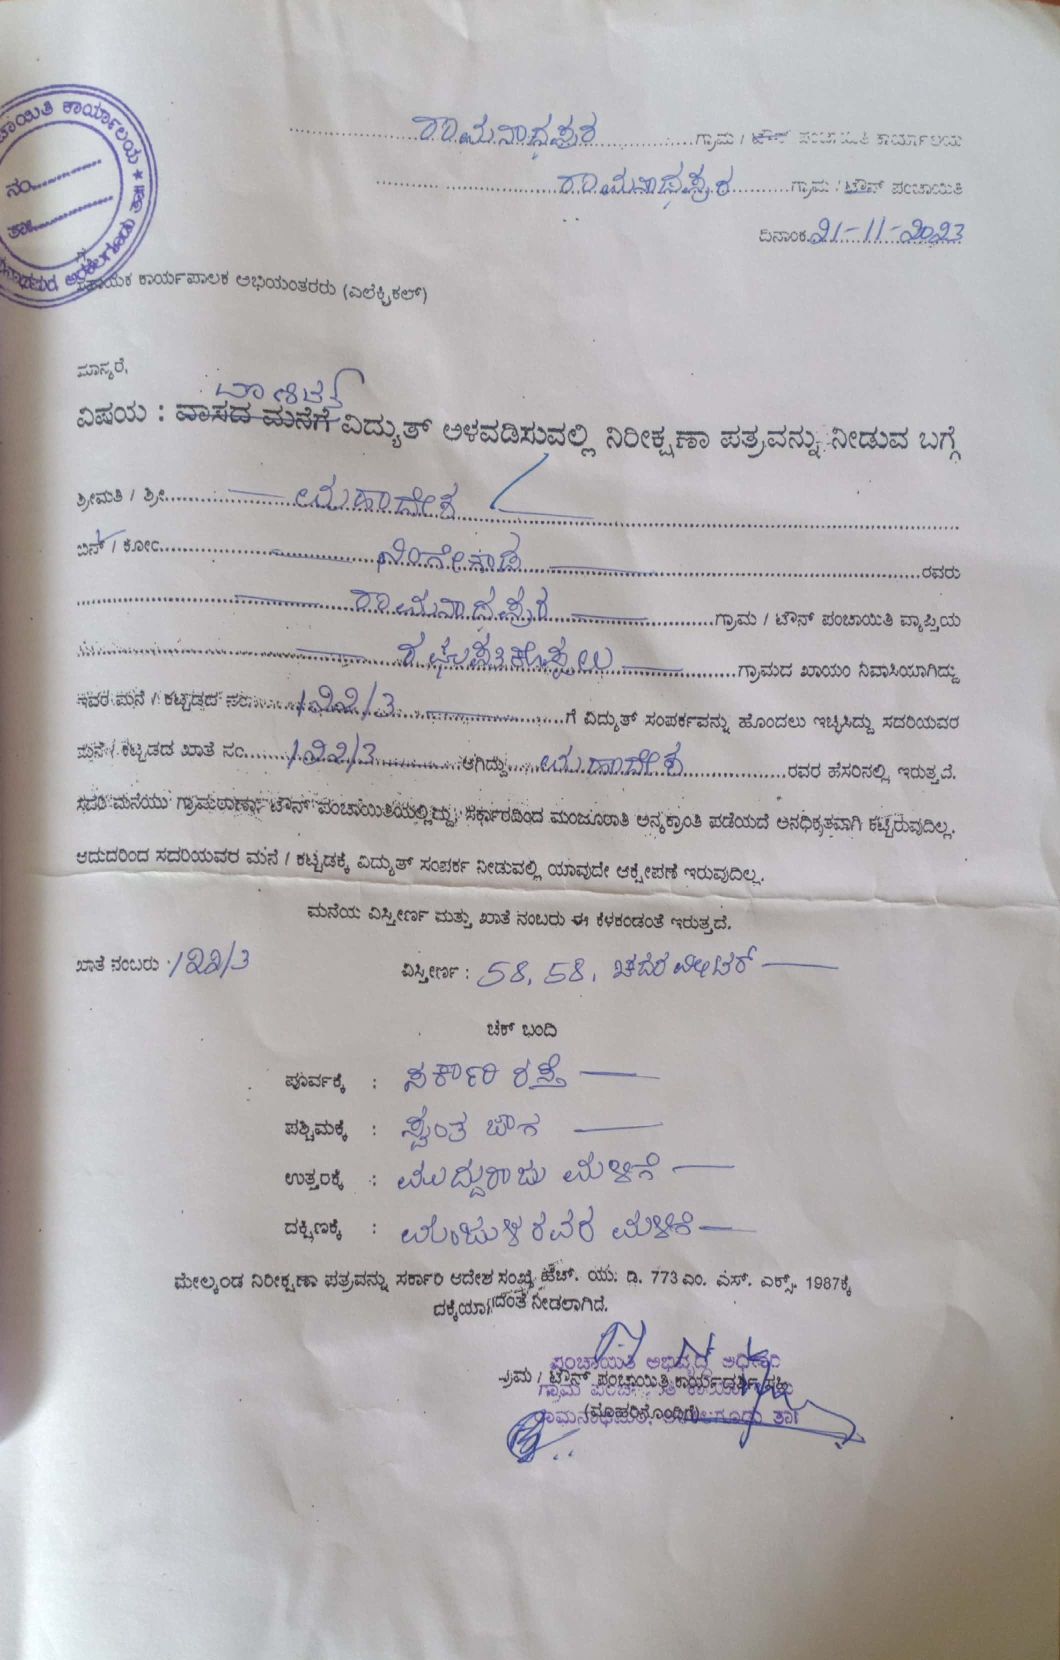 ರಾಮನಾಥಪುರ ಗ್ರಾಮ / ಟೌನ್ ಪಂಚಾಯಿತಿ ಕಾರ್ಯಾಲಯ
ರಾಮನಾಥಪುರ ಗ್ರಾಮ / ಟೌನ್ ಪಂಚಾಯಿತಿ
ದಿನಾಂಕ 21-11-2023
ಕಾರ್ಯಾಲಯ ★
ನಂ
ತಾ
ಸಹಾಯಕ ಕಾರ್ಯಪಾಲಕ ಅಭಿಯಂತರರು (ಎಲೆಕ್ಟ್ರಿಕಲ್)
ಮಾನ್ಯರೆ,
ವಾಣಿಜ್ಯ
ವಿಷಯ : ವಾಸದ ಮನೆಗೆ ವಿದ್ಯುತ್ ಅಳವಡಿಸುವಲ್ಲಿ ನಿರೀಕ್ಷಣಾ ಪತ್ರವನ್ನು ನೀಡುವ ಬಗ್ಗೆ
ಶ್ರೀಮತಿ / ಶ್ರೀ ಮಹಾದೇಶ
ಬಿನ್ / ಕೋಂ ನಿಂಗೇಗೌಡ ರವರು
ರಾಮನಾಥಪುರ ಗ್ರಾಮ / ಟೌನ್ ಪಂಚಾಯಿತಿ ವ್ಯಾಪ್ತಿಯ
ರಘುಪತಿಕೊಪ್ಪಲು ಗ್ರಾಮದ ಖಾಯಂ ನಿವಾಸಿಯಾಗಿದ್ದು
ಇವರ ಮನೆ / ಕಟ್ಟಡದ ನಂ 122/3 ಗೆ ವಿದ್ಯುತ್ ಸಂಪರ್ಕವನ್ನು ಹೊಂದಲು ಇಚ್ಛಿಸಿದ್ದು ಸದರಿಯವರ
ಮನೆ / ಕಟ್ಟಡದ ಖಾತೆ ನಂ 122/3 ಆಗಿದ್ದು ಮಹಾದೇಶ ರವರ ಹೆಸರಿನಲ್ಲಿ ಇರುತ್ತದೆ.
ಸದರಿ ಮನೆಯು ಗ್ರಾಮಠಾಣಾ ಟೌನ್ ಪಂಚಾಯಿತಿಯಲ್ಲಿದ್ದು ಸರ್ಕಾರದಿಂದ ಮಂಜೂರಾತಿ ಅನ್ಯಕ್ರಾಂತಿ ಪಡೆಯದೆ ಅನಧಿಕೃತವಾಗಿ ಕಟ್ಟಿರುವುದಿಲ್ಲ.
ಆದುದರಿಂದ ಸದರಿಯವರ ಮನೆ / ಕಟ್ಟಡಕ್ಕೆ ವಿದ್ಯುತ್ ಸಂಪರ್ಕ ನೀಡುವಲ್ಲಿ ಯಾವುದೇ ಆಕ್ಷೇಪಣೆ ಇರುವುದಿಲ್ಲ.
ಮನೆಯ ವಿಸ್ತೀರ್ಣ ಮತ್ತು ಖಾತೆ ನಂಬರು ಈ ಕೆಳಕಂಡಂತೆ ಇರುತ್ತದೆ.
ಖಾತೆ ನಂಬರು 122/3 ವಿಸ್ತೀರ್ಣ : 58.58. ಚದರ ಮೀಟರ್
ಚೆಕ್ ಬಂದಿ
ಪೂರ್ವಕ್ಕೆ : ಸರ್ಕಾರಿ ರಸ್ತೆ
ಪಶ್ಚಿಮಕ್ಕೆ : ಸ್ವಂತ ಜಾಗ
ಉತ್ತರಕ್ಕೆ : ಮುದ್ದುರಾಜು ಮಳಿಗೆ
ದಕ್ಷಿಣಕ್ಕೆ : ಮಂಜುಳ ರವರ ಮಳಿಗೆ
ಮೇಲ್ಕಂಡ ನಿರೀಕ್ಷಣಾ ಪತ್ರವನ್ನು ಸರ್ಕಾರಿ ಆದೇಶ ಸಂಖ್ಯೆ ಹೆಚ್. ಯು. ಡಿ. 773 ಎಂ. ಎಸ್. ಎಕ್ಸ್. 1987ಕ್ಕೆ
ದಕ್ಕೆಯಾಗದಂತೆ ನೀಡಲಾಗಿದೆ.
ಪಂಚಾಯಿತಿ ಅಭಿವೃದ್ಧಿ ಅಧಿಕಾರಿ
ಗ್ರಾಮ / ಟೌನ್ ಪಂಚಾಯಿತಿ ಕಾರ್ಯದರ್ಶಿ ಸಹಿ
(ಮೊಹರಿನೊಂದಿಗೆ)